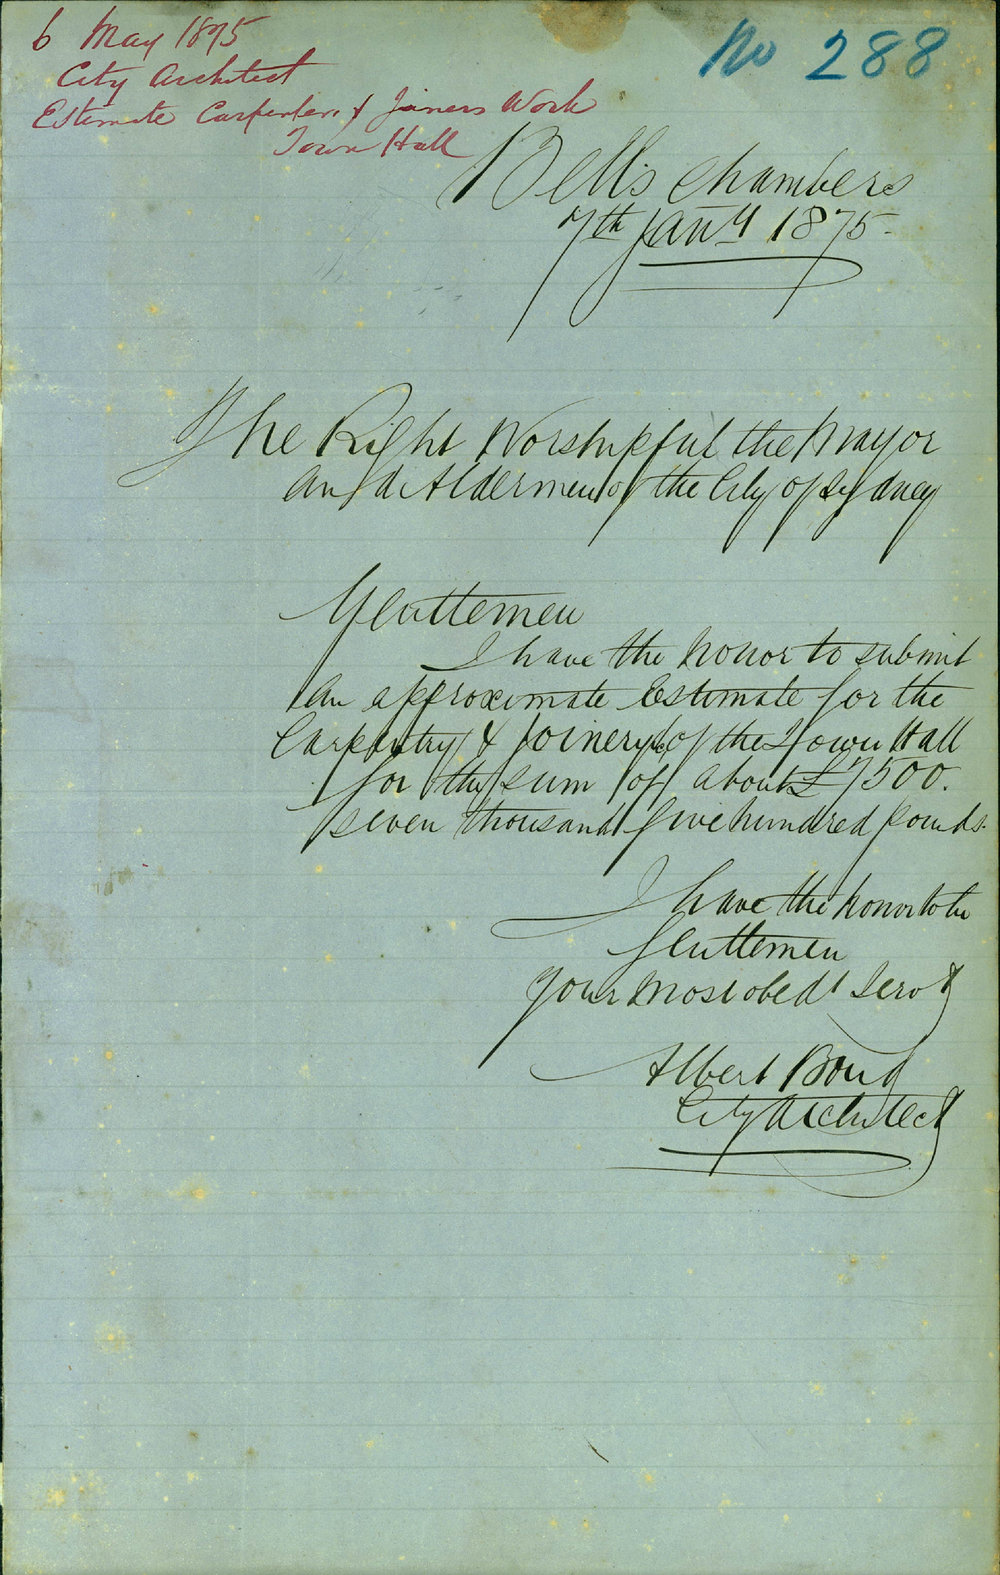 6 May 1875
City Architect
Estimate Carpenters & Joiners Work
Town Hall
No 288
Bells Chambers
7th Jany 1875.
The Right Worshipful the Mayor
and Aldermen of the City of Sydney
Gentlemen
I have the honor to submit
an approximate Estimate for the
Carpentry & Joinery of the Town Hall
for the sum of about £7500.
seven thousand five hundred pounds.
I have the honor to be
Gentlemen
Your most obedt Servt
Albert Bond
City Architect